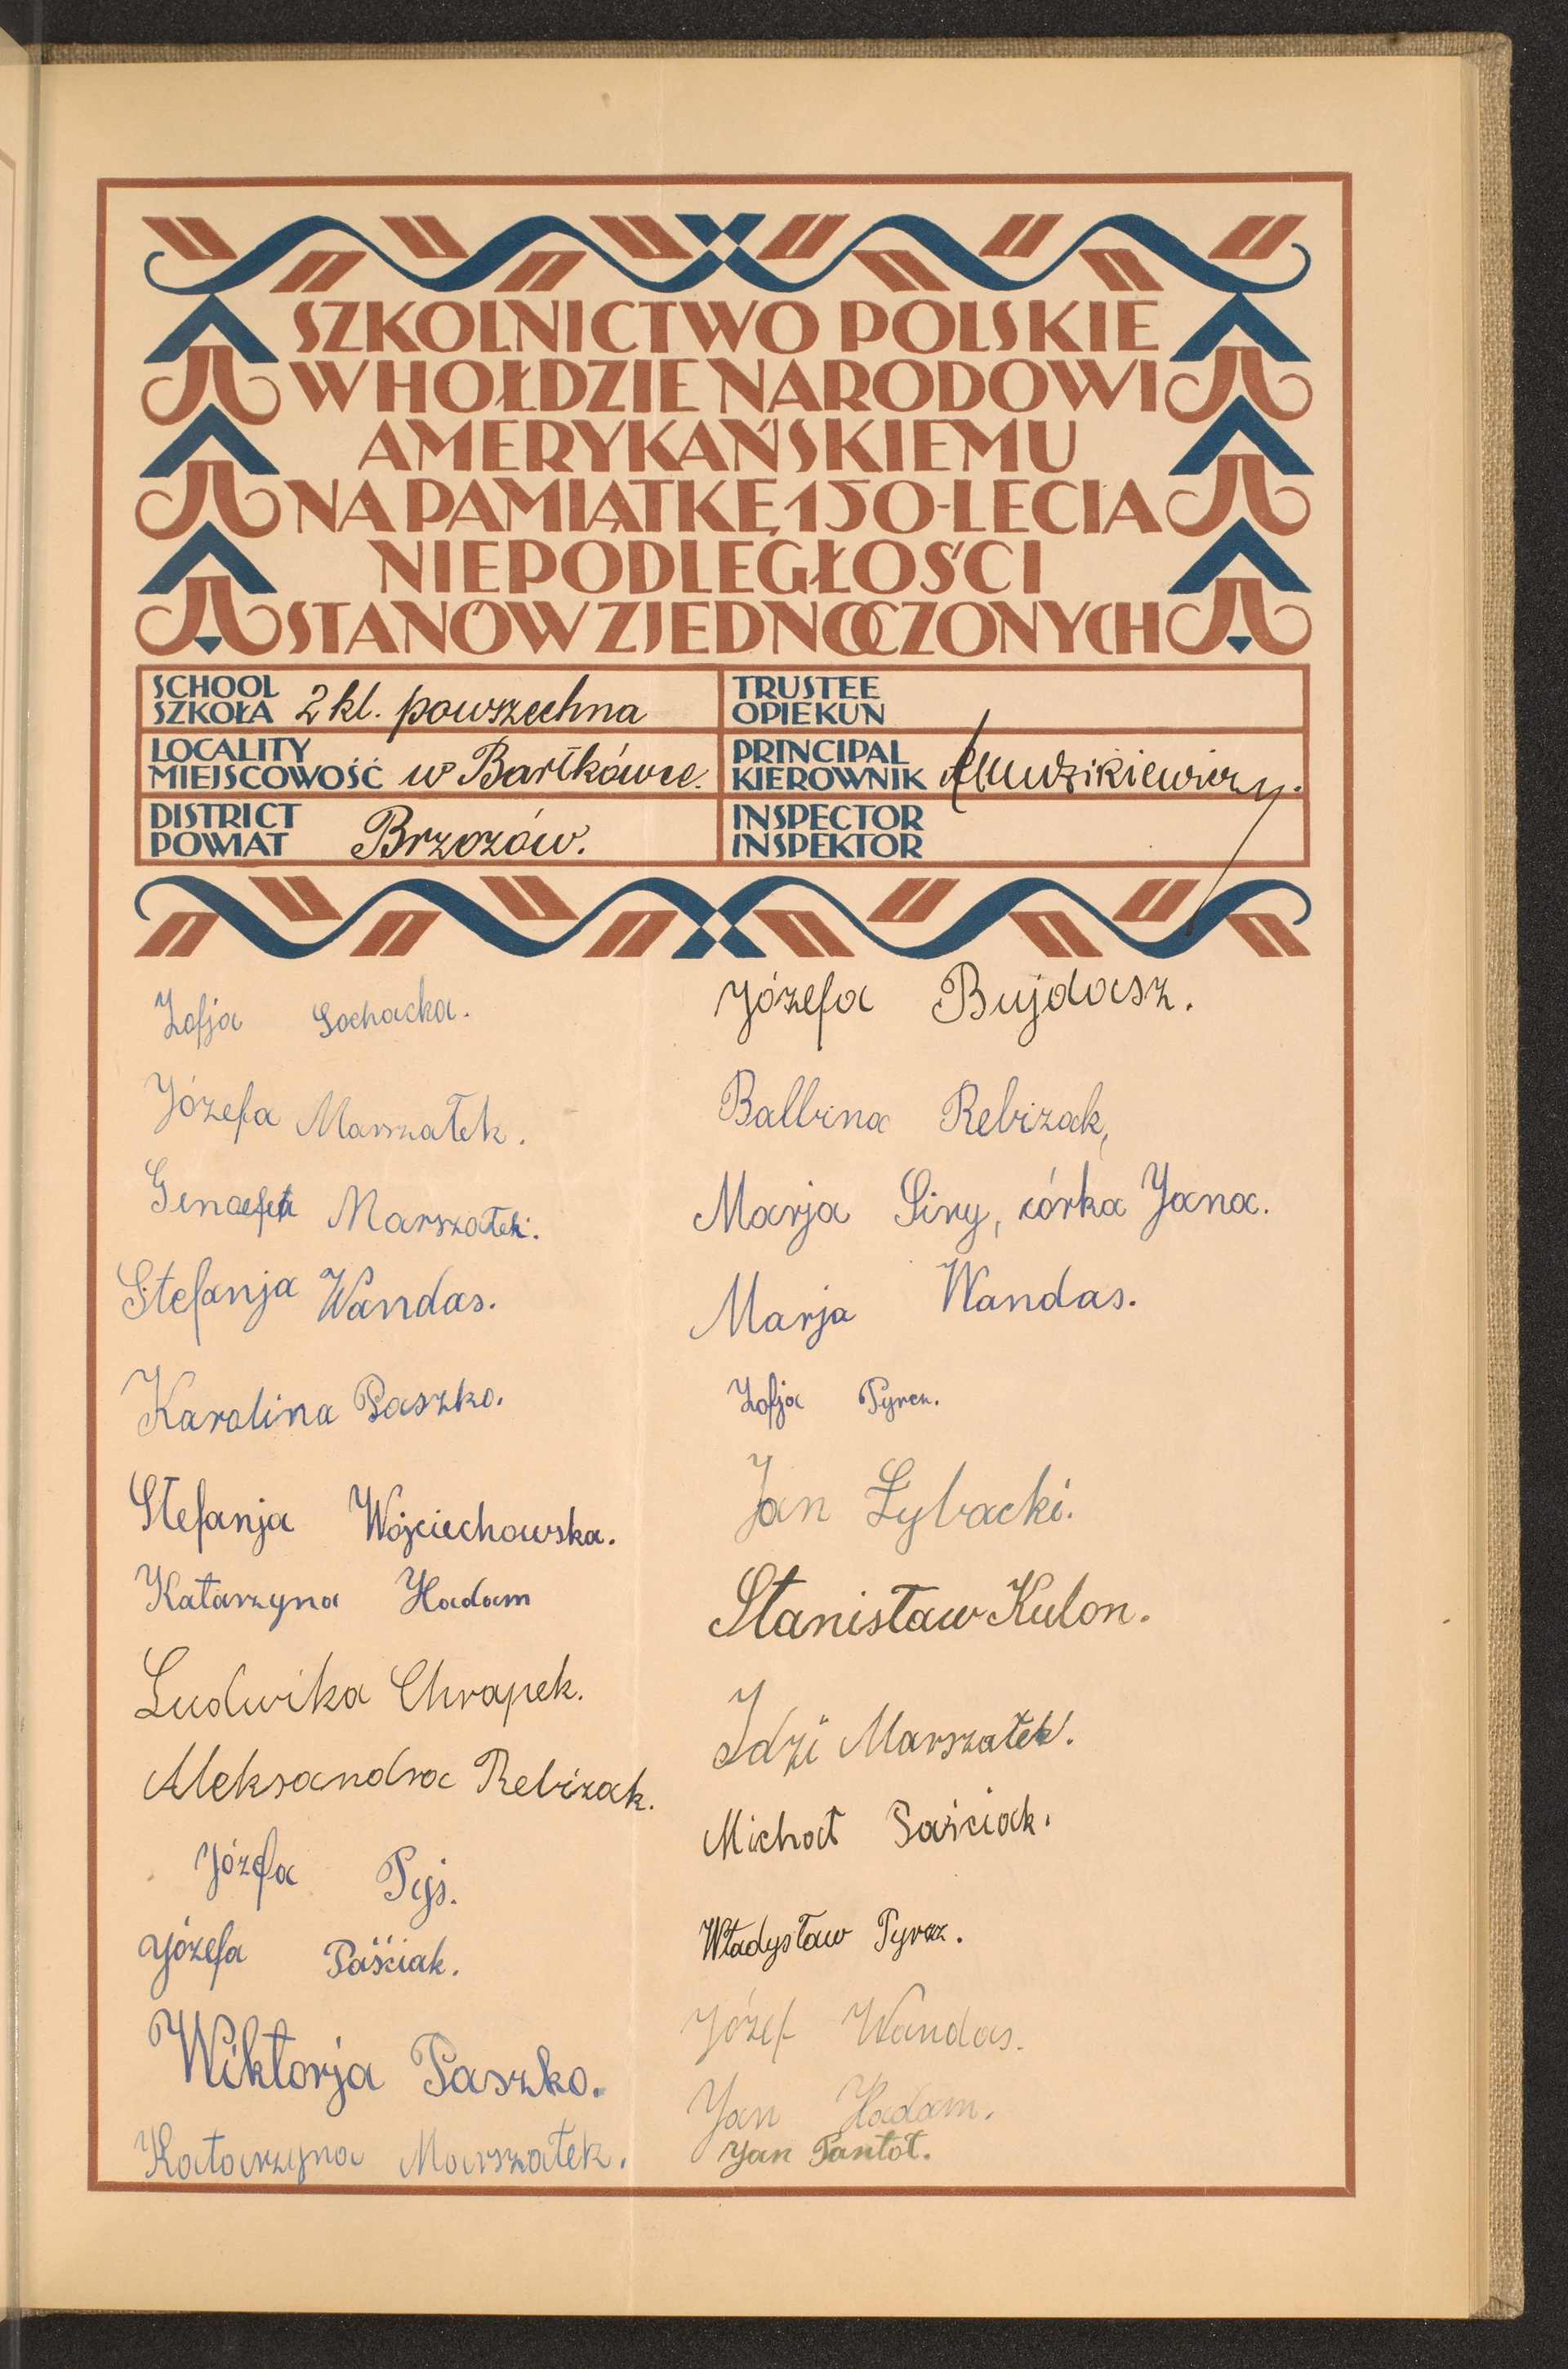 SZKOLNICTWO POLSKIE
W HOŁDZIE NARODOWI
AMERYKAŃSKIEMU
NA PAMIĄTKĘ 150-LECIA
NIEPODLEGŁOŚCI
STANÓW ZJEDNOCZONYCH
SCHOOL
SZKOŁA 2 kl. powszechna
TRUSTEE
OPIEKUN
LOCALITY
MIEJSCOWOŚĆ w Bartkówce.
PRINCIPAL
KIEROWNIK
DISTRICT
POWIAT Brzozów.
INSPECTOR
INSPEKTOR
Zofja Sochacka.
Józefa Marszałek.
Marszałek.
Stefanja Wandas.
Karolina Paszko.
Stefanja Wojciechowska.
Katarzyna Hadam
Ludwika Chrapek.
Aleksandra Rebizak.
Józefa Pyś.
Józefa Paściak.
Wiktorja Paszko.
Katarzyna Marszałek.
Józefa Bujdasz.
Balbina Rebizak,
Marja Siry, córka Jana.
Marja Wandas.
Zofja
Jan Łybacki.
Stanisław Kulon.
Idzi Marszałek.
Michał Paściak.
Władysław
Józef Wandas.
Jan Hadam.
Jan Pantoł.